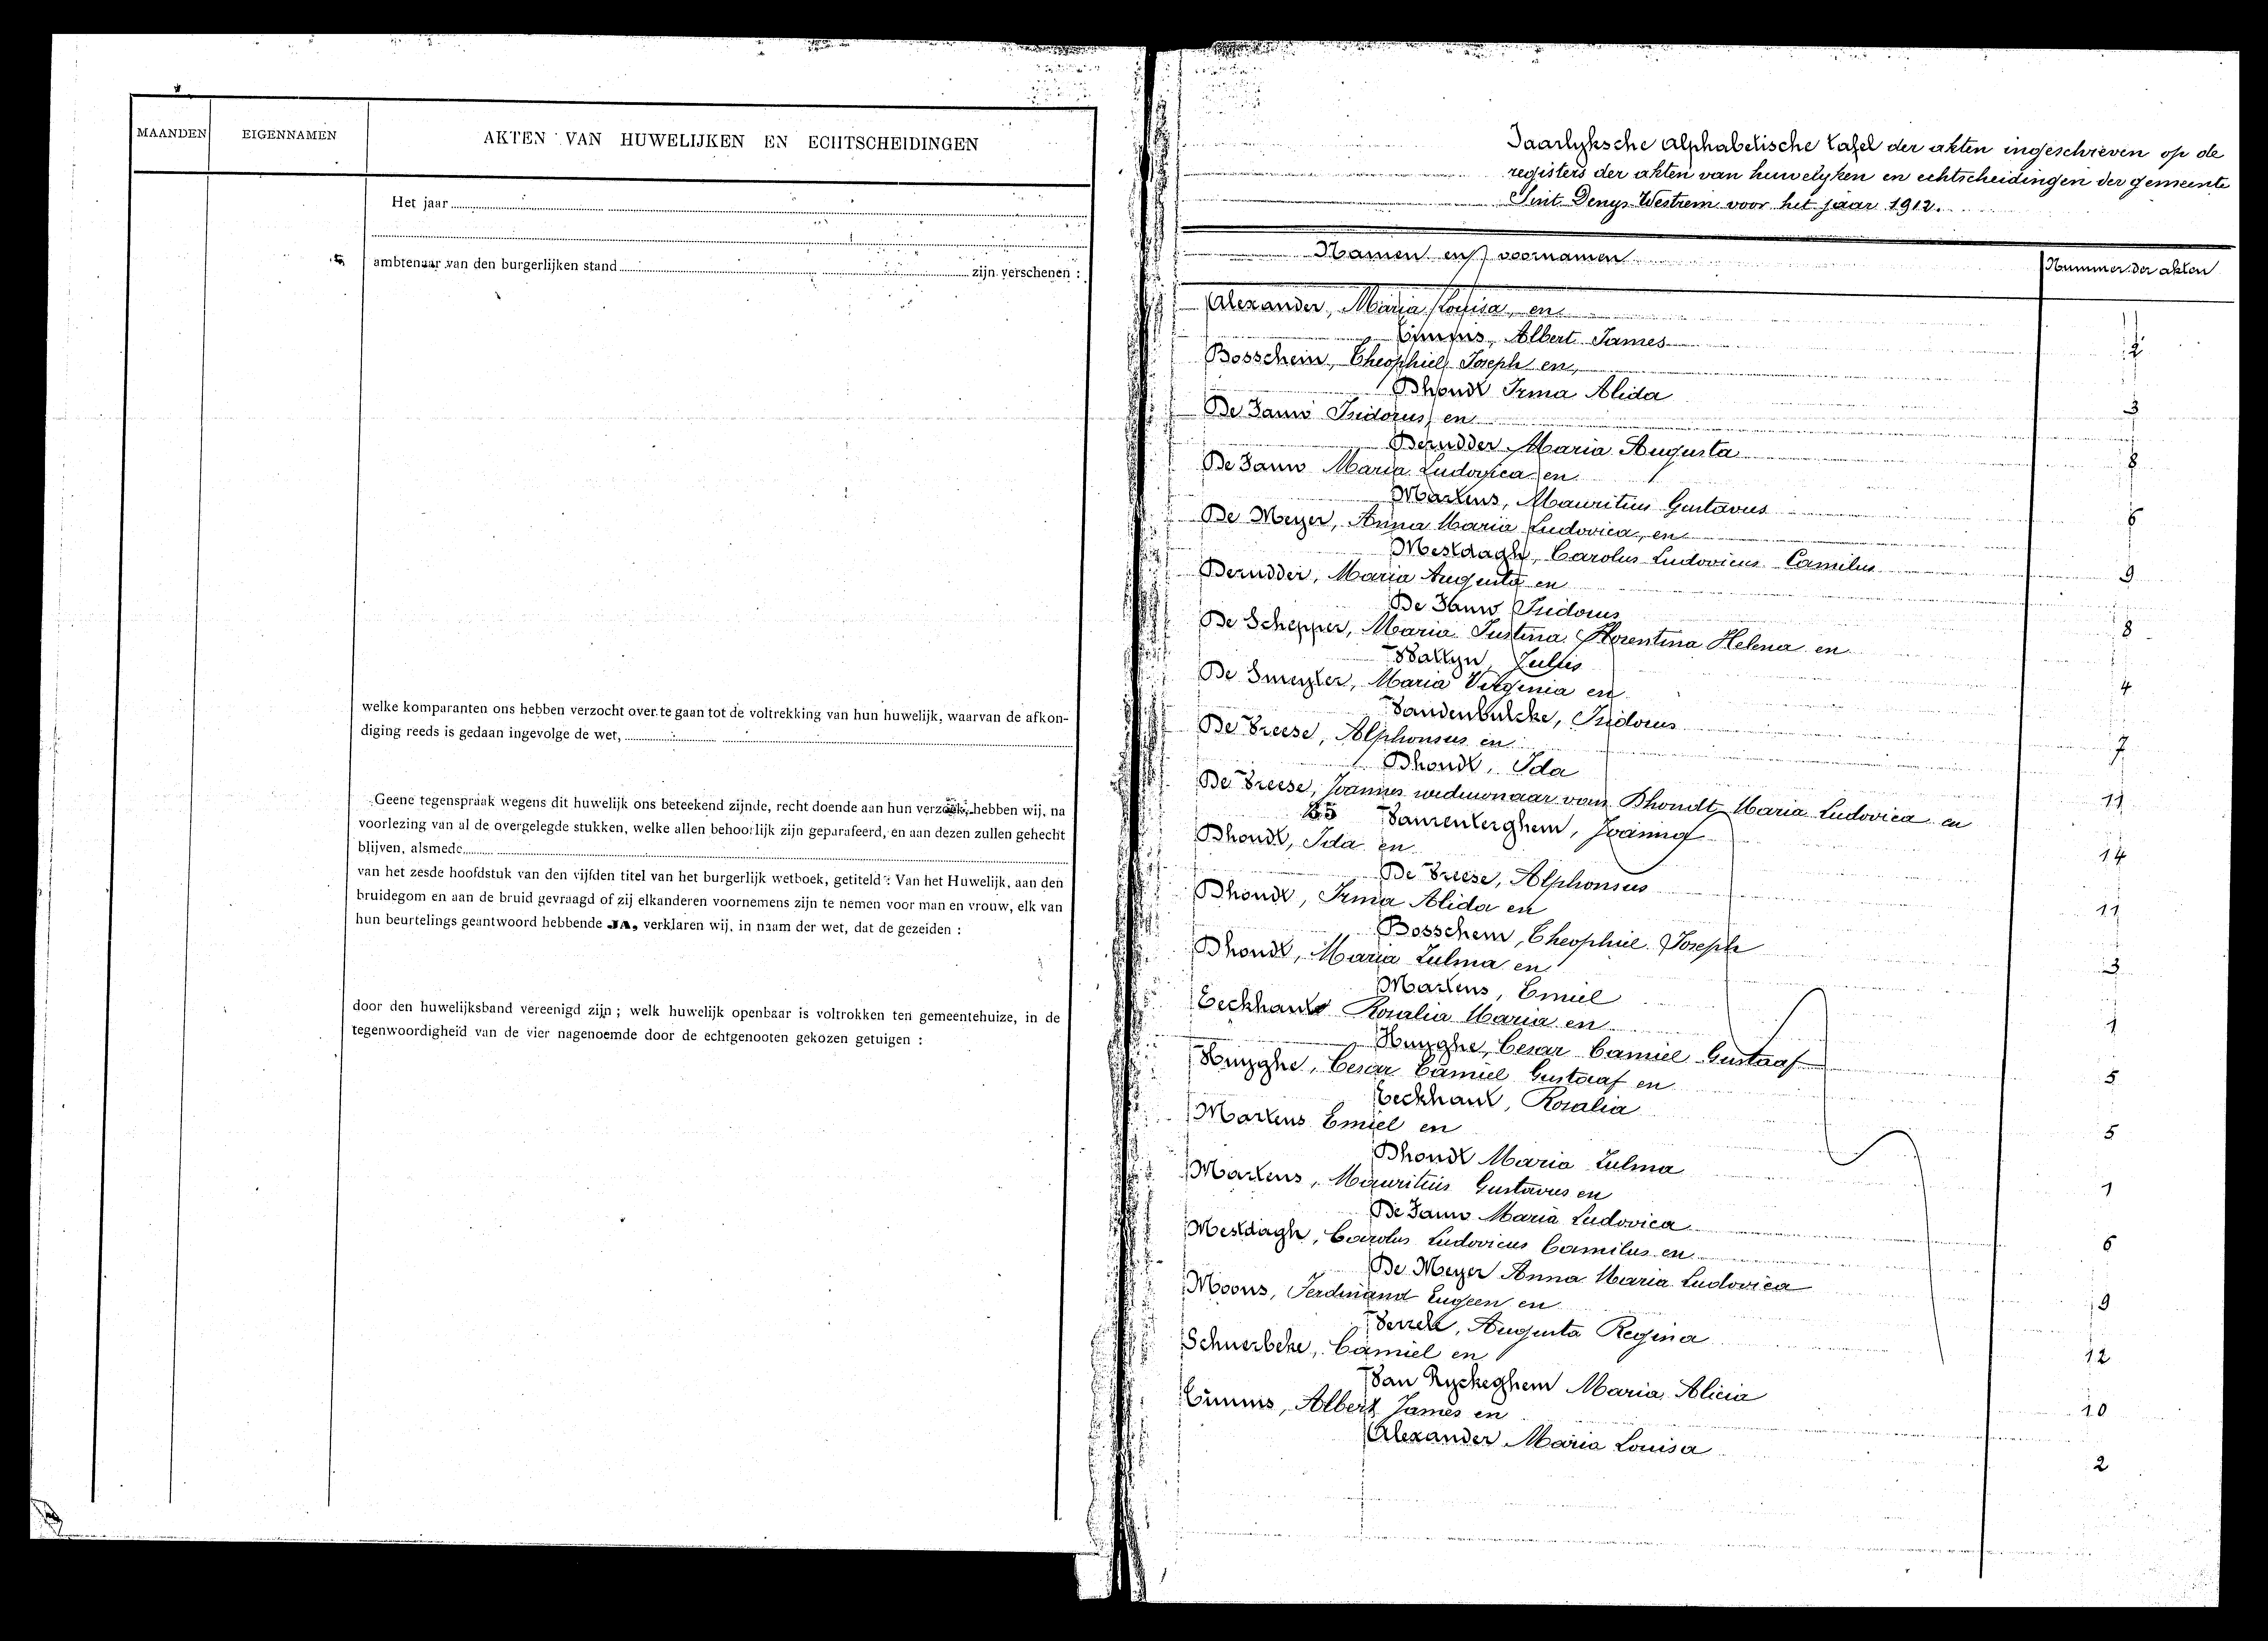 MAANDEN
EIGENNAMEN
AKTEN VAN HUWELIJKEN EN ECHTSCHEIDINGEN
Het jaar
ambtenaar van den burgerlijken stand zijn verschenen :
welke komparanten ons hebben verzocht over te gaan tot de voltrekking van hun huwelijk, waarvan de afkon-
diging reeds is gedaan ingevolge de wet,
Geene tegenspraak wegens dit huwelijk ons beteekend zijnde, recht doende aan hun verzoek, hebben wij, na
voorlezing van al de overgelegde stukken, welke allen behoorlijk zijn geparafeerd, en aan dezen zullen gehecht
blijven, alsmede
van het zesde hoofdstuk van den vijfden titel van het burgerlijk wetboek, getiteld : Van het Huwelijk, aan den
bruidegom en aan de bruid gevraagd of zij elkanderen voornemens zijn te nemen voor man en vrouw, elk van
hun beurtelings geantwoord hebbende JA, verklaren wij, in naam der wet, dat de gezeiden :
door den huwelijksband vereenigd zijn ; welk huwelijk openbaar is voltrokken ten gemeentehuize, in de
tegenwoordigheid van de vier nagenoemde door de echtgenooten gekozen getuigen :
Jaarlyksche alphabetische tafel der akten ingeschreven op de
registers der akten van huwelyken en echtscheidingen der gemeente
Sint Denys-Westrem voor het jaar 1912.
Namen en voornamen
Nummer der akten
Alexander, Maria Louisa, en
Timms, Albert James 2
Bosschem, Theophiel Joseph en
Dhondt Irma Alida 3
De Jauw Isidorus en
Derudder Maria Augusta 8
De Jauw Maria Ludovica en
Martens, Mauritius Gustavus 6
De Meyer, Anna Maria Ludovica, en
Mestdagh, Carolus Ludovicus Camilus 9
Derudder, Maria Augusta en
De Jauw Isidorus 8
De Schepper, Maria Justina Florentina Helena en
Wallyn, Julius 4
De Smeyter, Maria Virginia en
Vandenbulcke, Isidorus 7
De Vreese, Alphonsus en
Dhondt, Ida 11
De Vreese, Joannes weduwnaar van Dhondt Maria Ludovica en
Vanrenterghem, Joanna 14
Dhondt, Ida en
De Vreese, Alphonsus 11
Dhondt, Irma Alida en
Bosschem, Theophiel Joseph 3
Dhondt, Maria Zulma en
Martens, Emiel 1
Eeckhaut Rosalia Maria en
Huyghe, Cesar Camiel Gustaaf 5
Huyghe, Cesar Camiel Gustaaf en
Eeckhaut, Rosalia 5
Martens Emiel en
Dhondt Maria Zulma 1
Martens, Mauritius Gustavus en
De Jauw Maria Ludovica 6
Mestdagh, Carolus Ludovicus Camilus en
De Meyer Anna Maria Ludovica 9
Moons, Ferdinand Eugeen en
Verzele, Augusta Regina 12
Schuerbeke, Camiel en
Van Ryckeghem Maria Alicia 10
Timms, Albert James en
Alexander Maria Louisa 2